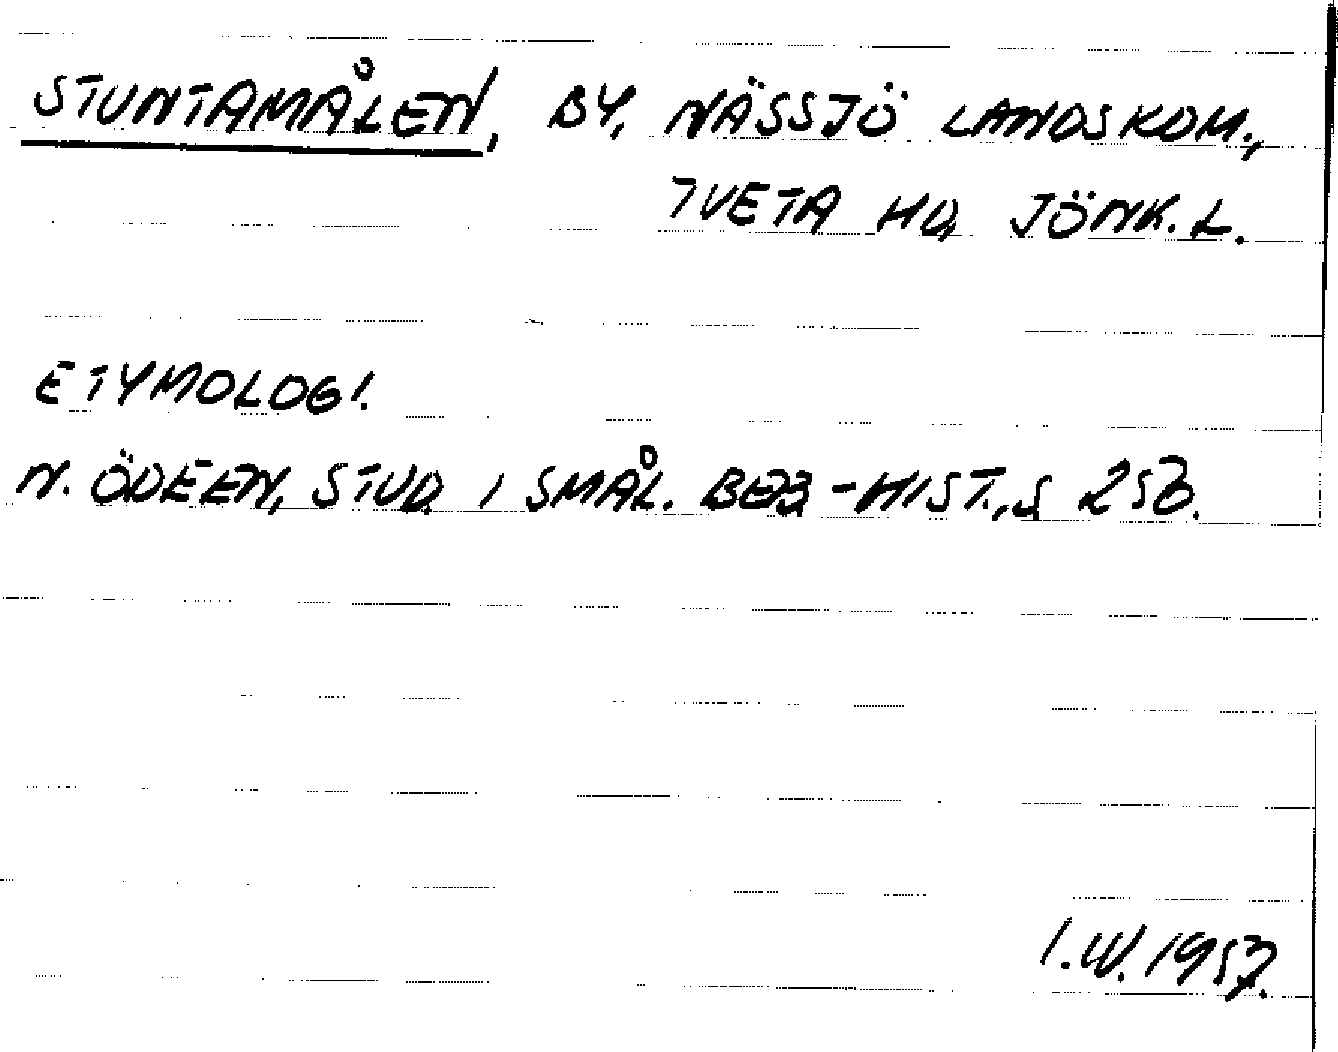 STUNTAMÅLEN, BY, NÄSSJÖ LANDSKOM.,
TVETA HD, JÖNK. L.
ETYMOLOGI.
N. ÖDEEN, STUD. I SMÅL. BEB-HIST., S 253.
I.W. 1957.